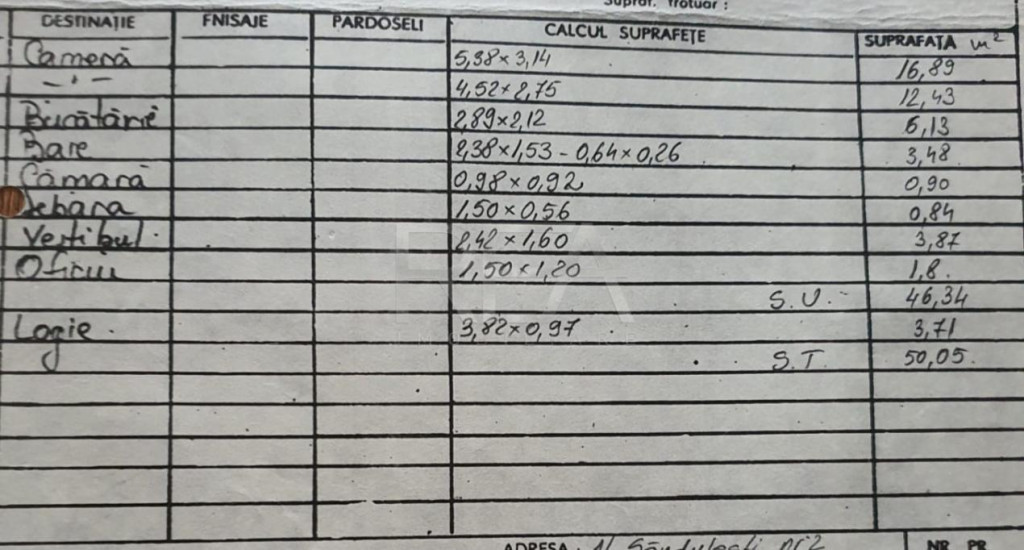 Supraf. Trotuar :
DESTINAȚIE FNISAJE PARDOSELI CALCUL SUPRAFEȚE SUPRAFAȚA m²
Cameră 5,38×3,14 16,89
–"– 4,52×2,75 12,43
Bucătărie 2,89×2,12 6,13
Baie 2,38×1,53 - 0,64×0,26 3,48
Cămară 0,98×0,92 0,90
Debara 1,50×0,56 0,84
Vestibul. 2,42×1,60 3,87
Oficiu 1,50×1,20 1,8.
S.U.- 46,34
Logie. 3,82×0,97 3,71
S.T. 50,05.
ADRESA: Al. Săndulești nr 2 NR. PR.